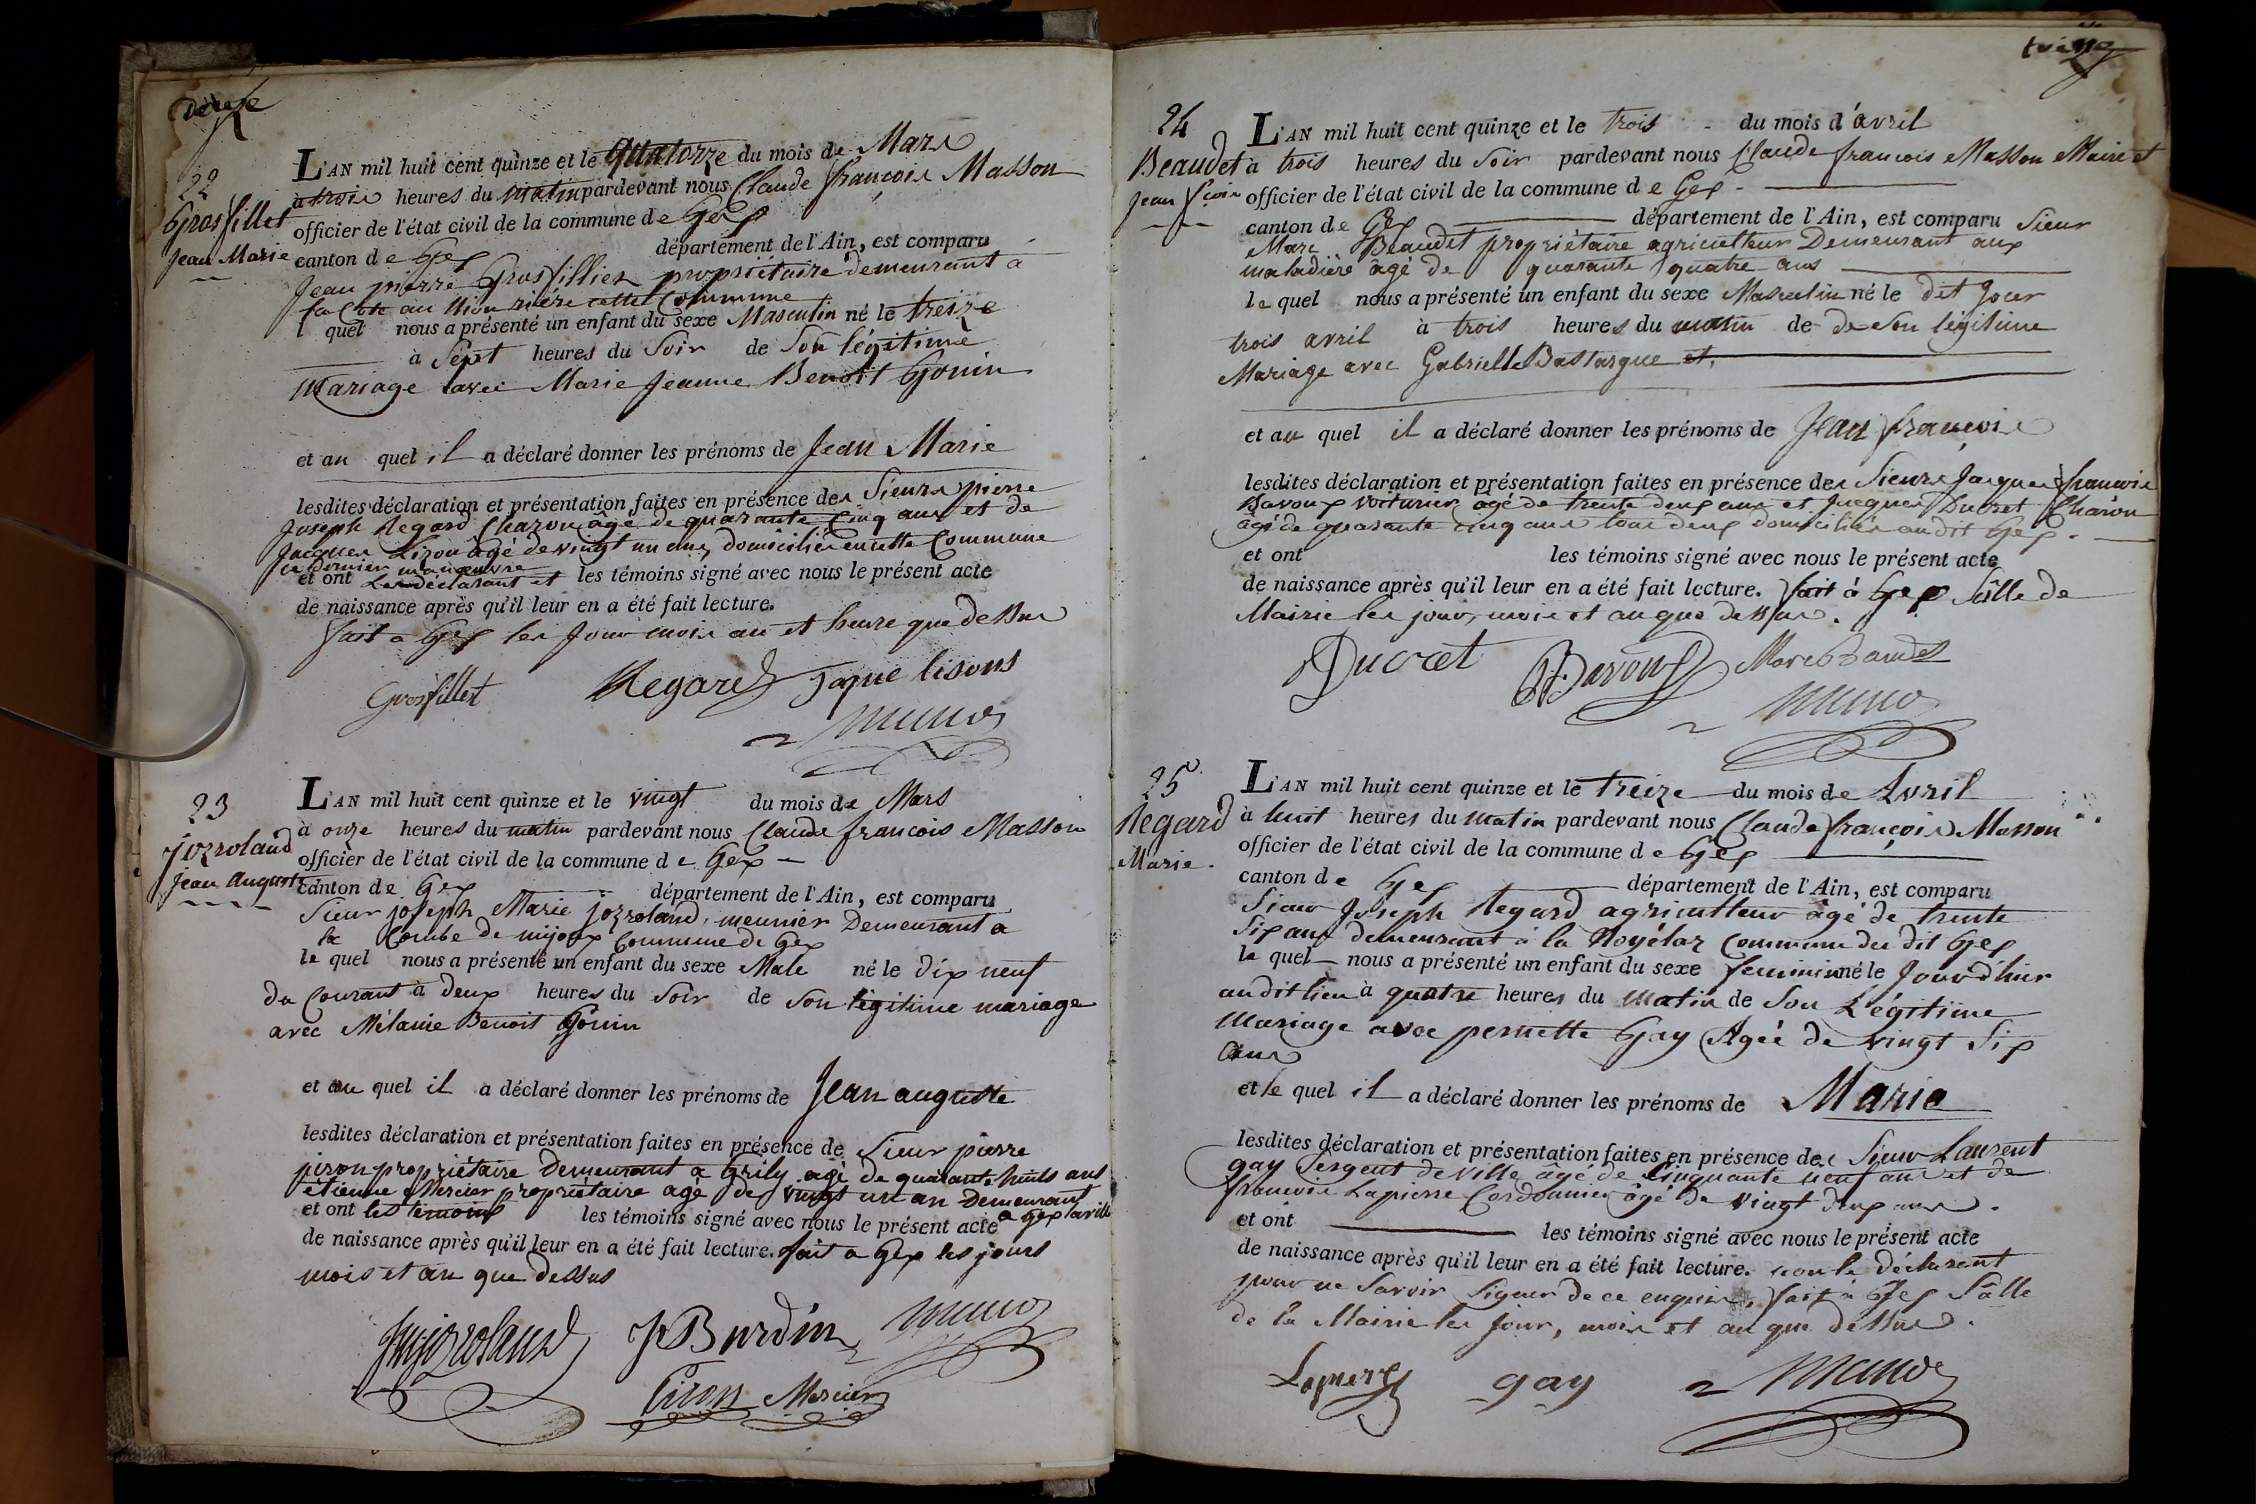 douze
22
Grosfillet
Jean Marie
L'AN mil huit cent quinze et le quatorze du mois de Mars
à trois heures du matin pardevant nous Claude françois Masson
officier de l'état civil de la commune de Gex
canton de Gex département de l'Ain, est comparu
Jean pierre Grosfillier propriétaire demeurant à
la Côte au rière cette Commune
l quel nous a présenté un enfant du sexe Masculin né le treize
à Sept heures du Soir de Son légitime
Mariage avec Marie Jeanne Benoit Gonin
et au quel il a déclaré donner les prénoms de Jean Marie
lesdites déclaration et présentation faites en présence des Sieurs pierre
Joseph Regard Charon âgé de quarante Cinq ans et de
Jacques Lizon âgé de vingt un ans, domiciliés en cette Commune
ce dernier manœuvre
et ont Le déclarant et les témoins signé avec nous le présent acte
de naissance après qu'il leur en a été fait lecture.
fait a Gex les Jour mois an et heure que dessus
Grosfillet Regard Jaque lisons
23
Jozroland
Jean Auguste
L'AN mil huit cent quinze et le vingt du mois de Mars
à onze heures du matin pardevant nous Claude françois Masson
officier de l'état civil de la commune de Gex
canton de Gex département de l'Ain, est comparu
Sieur joseph Marie jozroland, meunier Demeurant a
la Combe de mijoux Commune de Gex
le quel nous a présenté un enfant du sexe Male né le dix neuf
du Courant à deux heures du Soir de son légitime mariage
avec Mélanie Benoit Gonin
et au quel il a déclaré donner les prénoms de Jean auguste
lesdites déclaration et présentation faites en présence de Sieur pierre
piron propriétaire Demeurant a Grily agé de quarante huits ans
étienne Mercier propriétaire agé de vingt un an Demeurant
a Gex la ville
et ont les témoins les témoins signé avec nous le présent acte
de naissance après qu'il leur en a été fait lecture. fait a Gex les jours
mois et an que dessus
Jmjozroland JBurdin
Piron Mercier
treize
24
Beaudet
Jean fçois
L'AN mil huit cent quinze et le trois du mois d'avril
à trois heures du Soir pardevant nous Claude françois Masson Maire et
officier de l'état civil de la commune de Gex
canton de Gex département de l'Ain, est comparu Sieur
Marc Beaudet propriétaire agriculteur Demeurant aux
maladière âgé de quarante quatre ans
le quel nous a présenté un enfant du sexe Masculin né le dit Jour
trois avril à trois heures du matin de de Son légitime
Mariage avec Gabrielle Bastarque et,
et au quel il a déclaré donner les prénoms de Jean françois
lesdites déclaration et présentation faites en présence des Sieurs Jacques françois
Davoux voiturier âgé de trente deux ans et Jacques Ducret Charon
âgé de quarante cinq ans tous deux domiciliés audit Gex.
et ont les témoins signé avec nous le présent acte
de naissance après qu'il leur en a été fait lecture. fait à Gex Sâlle de
Mairie les jour, mois et an que dessus.
Ducret Davoux Marc Baudet
25
Regard
Marie.
L'AN mil huit cent quinze et le treize du mois de Avril
à huit heures du matin pardevant nous Claude françois Masson
officier de l'état civil de la commune de Gex
canton de Gex département de l'Ain, est comparu
Sieur Joseph Regard agriculteur âgé de trente
Six ans demeurant à la Commune du dit Gex
le quel nous a présenté un enfant du sexe feminin né le Jourd'hui
au dit lieu à quatre heures du matin de Son Légitime
Mariage avec pernette Gay Agée de vingt Six
ans
et le quel il a déclaré donner les prénoms de Marie
lesdites déclaration et présentation faites en présence des Sieur Laurent
gay Sergent de ville âgé de Cinquante neuf ans et de
françois Lapierre Cordonnier âgé de vingt deux ans.
et ont les témoins signé avec nous le présent acte
de naissance après qu'il leur en a été fait lecture. non le déclarant
pour ne Savoir Signer de ce enquis, fait à Gex Sâlle
de la Mairie les Jour, mois et an que dessus.
Lapierre gay